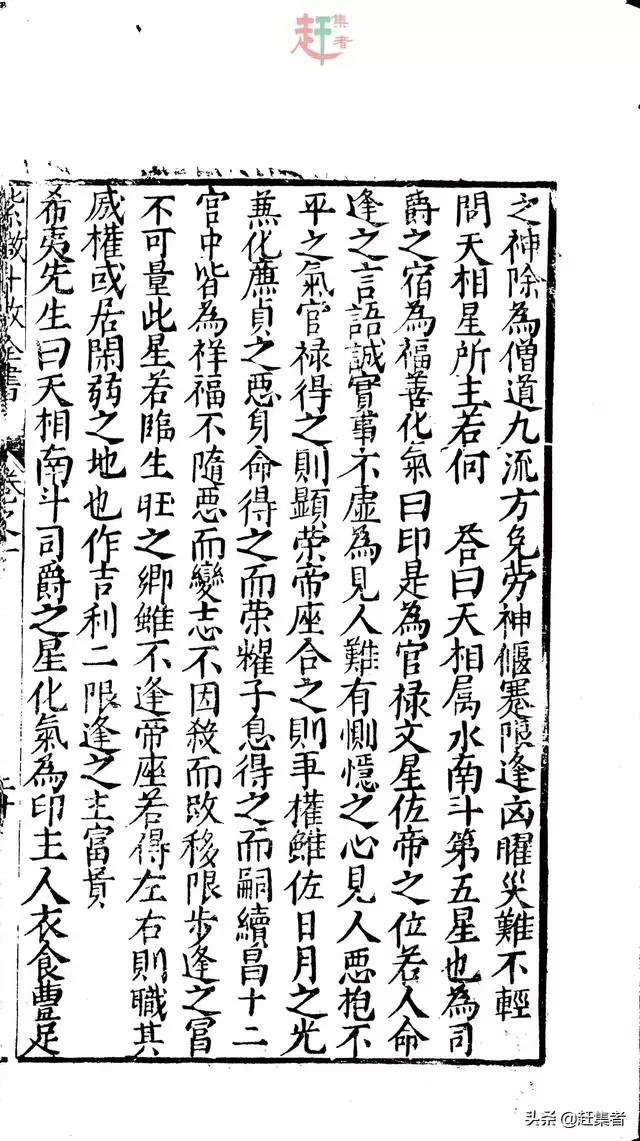 赶集者
之神除為僧道九流方免勞神偃蹇限逢凶曜災難不輕
問天相星所主若何　答曰天相属水南斗第五星也為司
爵之宿為福善化氣曰印是為官禄文星佐帝之位若人命
逢之言語誠實事不虛為見人難有惻憶之心見人惡抱不
平之氣官禄得之則顯荣帝座合之則爭權雖佐日月之光
兼化廉貞之惡身命得之而荣耀子息得之而嗣續昌十二
宫中皆為祥福不隨惡而變志不因殺而改移限步逢之冨
不可量此星若臨生旺之鄉雖不逢帝座若得左右則職其
威權或居閑弱之地也作吉利二限逢之主富貴
希夷先生曰天相南斗司爵之星化氣為印主人衣食豊足
紫微斗数全書　卷之一
头条 @赶集者